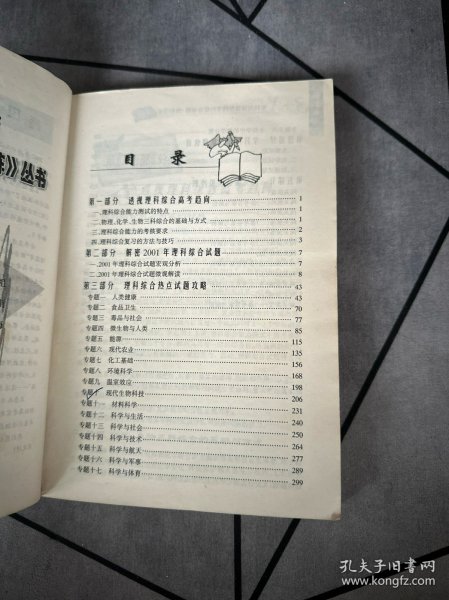 》丛书
目 录
第一部分 透视理科综合高考趋向 1
一.理科综合能力测试的特点 1
二.物理、化学、生物三科综合的基础与方式 1
三.理科综合能力的考核要求 2
四.理科综合复习的方法与技巧 3
第二部分 解密2001年理科综合试题 7
一.2001年理科综合试题宏观分析 7
二.2001年理科综合试题微观解读 8
第三部分 理科综合热点试题攻略 43
专题一 人类健康 43
专题二 食品卫生 70
专题三 毒品与社会 77
专题四 微生物与人类 85
专题五 能源 115
专题六 现代农业 135
专题七 化工基础 156
专题八 环境科学 168
专题九 温室效应 198
专题十 现代生物科技 206
专题十一 材料科学 231
专题十二 科学与生活 240
专题十三 科学与社会 250
专题十四 科学与技术 264
专题十五 科学与航天 277
专题十六 科学与军事 289
专题十七 科学与体育 299
孔夫子旧书网
www.kongfz.com